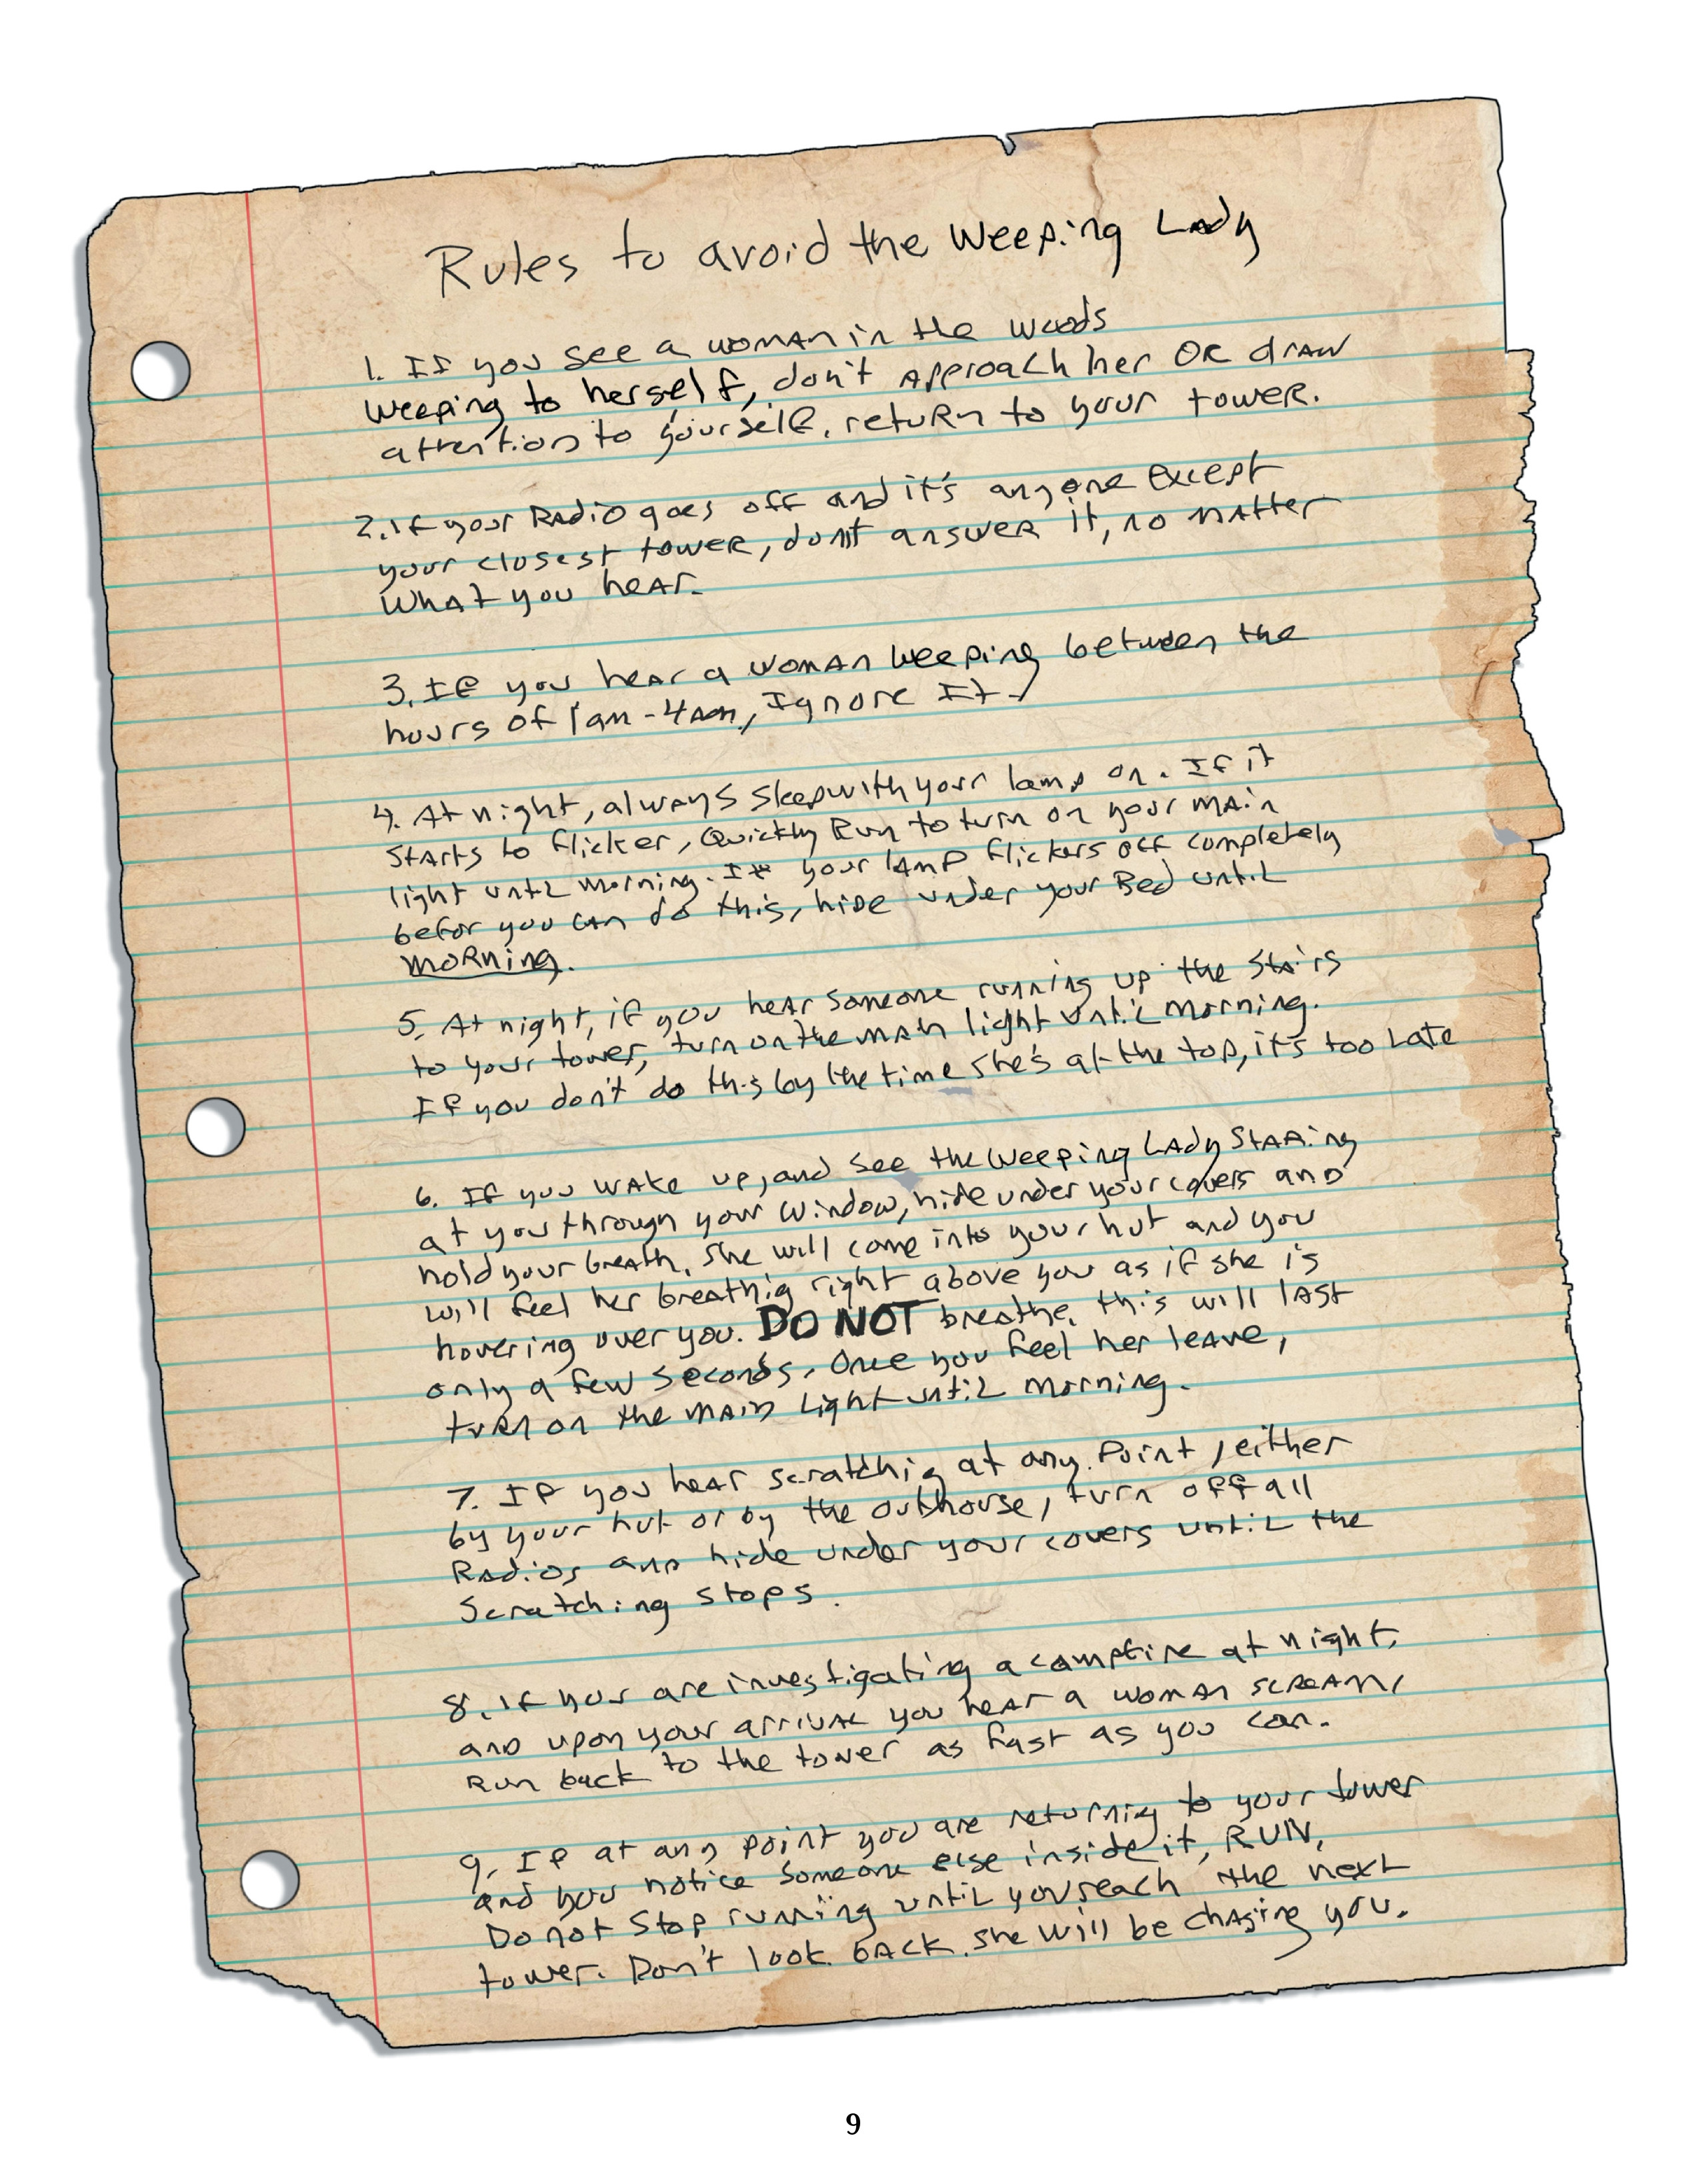 Rules to avoid the Weeping Lady
1. If you see a woman in the woods
weeping to herself, don't approach her OR draw
attention to yourself, return to your tower.
2. If your Radio goes off and it's anyone Except
your closest tower, don't answer it, no matter
What you hear.
3. If you hear a woman weeping between the
hours of 1am-4am, Ignore It.
4. At night, always sleep with your lamp on. If it
starts to flicker, Quickly Run to turn on your main
light until morning. If your lamp flickers off completely
befor you can do this, hide under your Bed until
morning.
5. At night, if you hear someone running up the stairs
to your tower, turn on the main light until morning.
If you don't do this by the time she's at the top, it's too late
6. If you wake up, and see the Weeping Lady staring
at you through your window, hide under your covers and
hold your breath. She will come into your hut and you
will feel her breathig right above you as if she is
hovering over you. DO NOT breathe. this will last
only a few seconds. Once you feel her leave,
turn on the main light until morning.
7. If you hear scratchig at any point, either
by your hut or by the outhouse, turn off all
Radios and hide under your covers until the
scratching stops.
8. If you are investigating a campfire at night,
and upon your arrival you hear a woman scream,
Run back to the tower as fast as you can.
9. If at any point you are returnig to your tower
and you notice someone else inside it, RUN,
Do not stop running until you reach the next
tower. Don't look back. She will be chasing you.
9